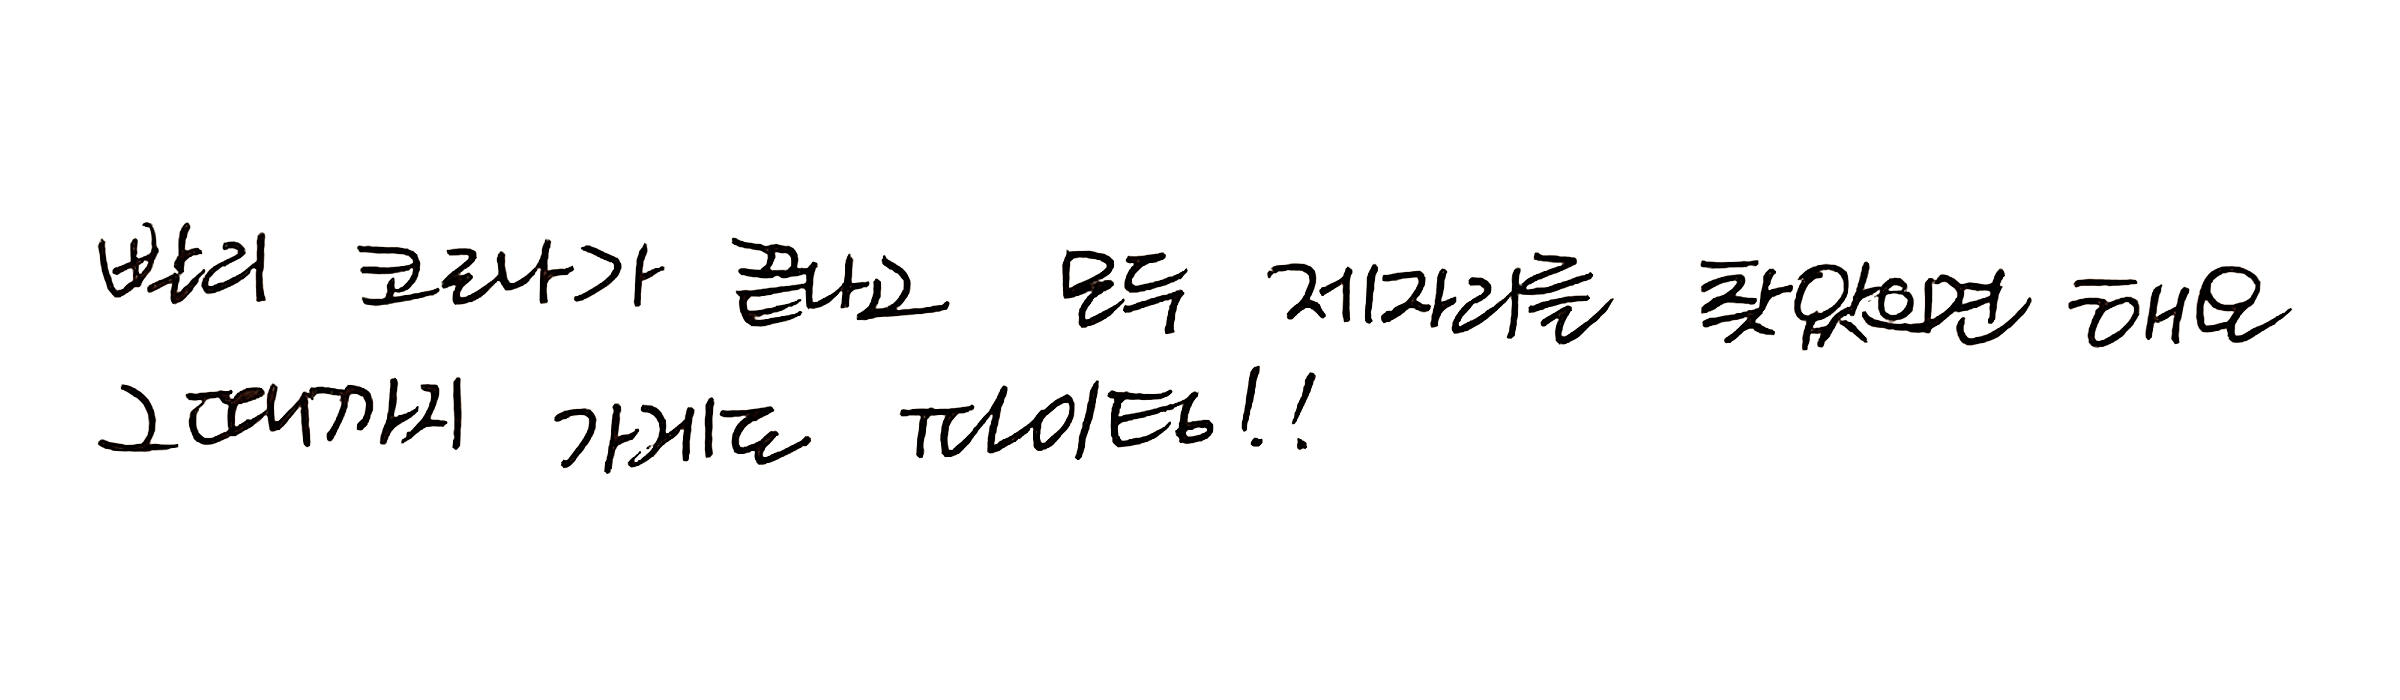 빨리 코로나가 끝나고 모두 제자리를 찾았으면 해요
그때까지 가게도 파이팅!!